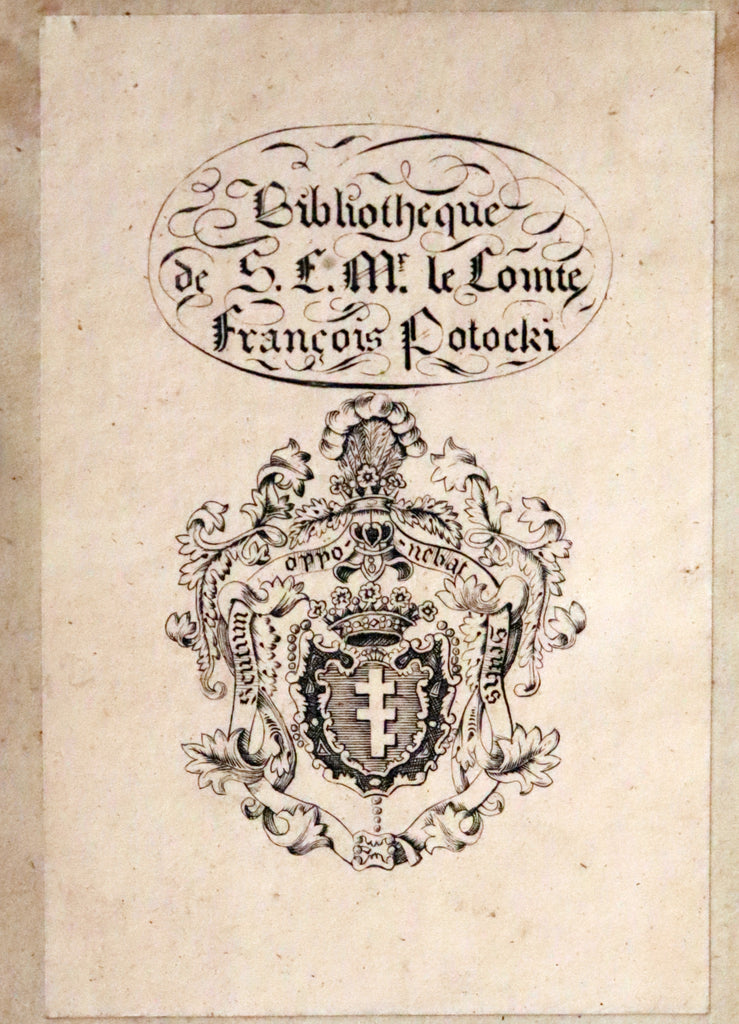 Bibliotheque
de S. E. Mr. le Comte
François Potocki
scutum oppo-nebat scutis